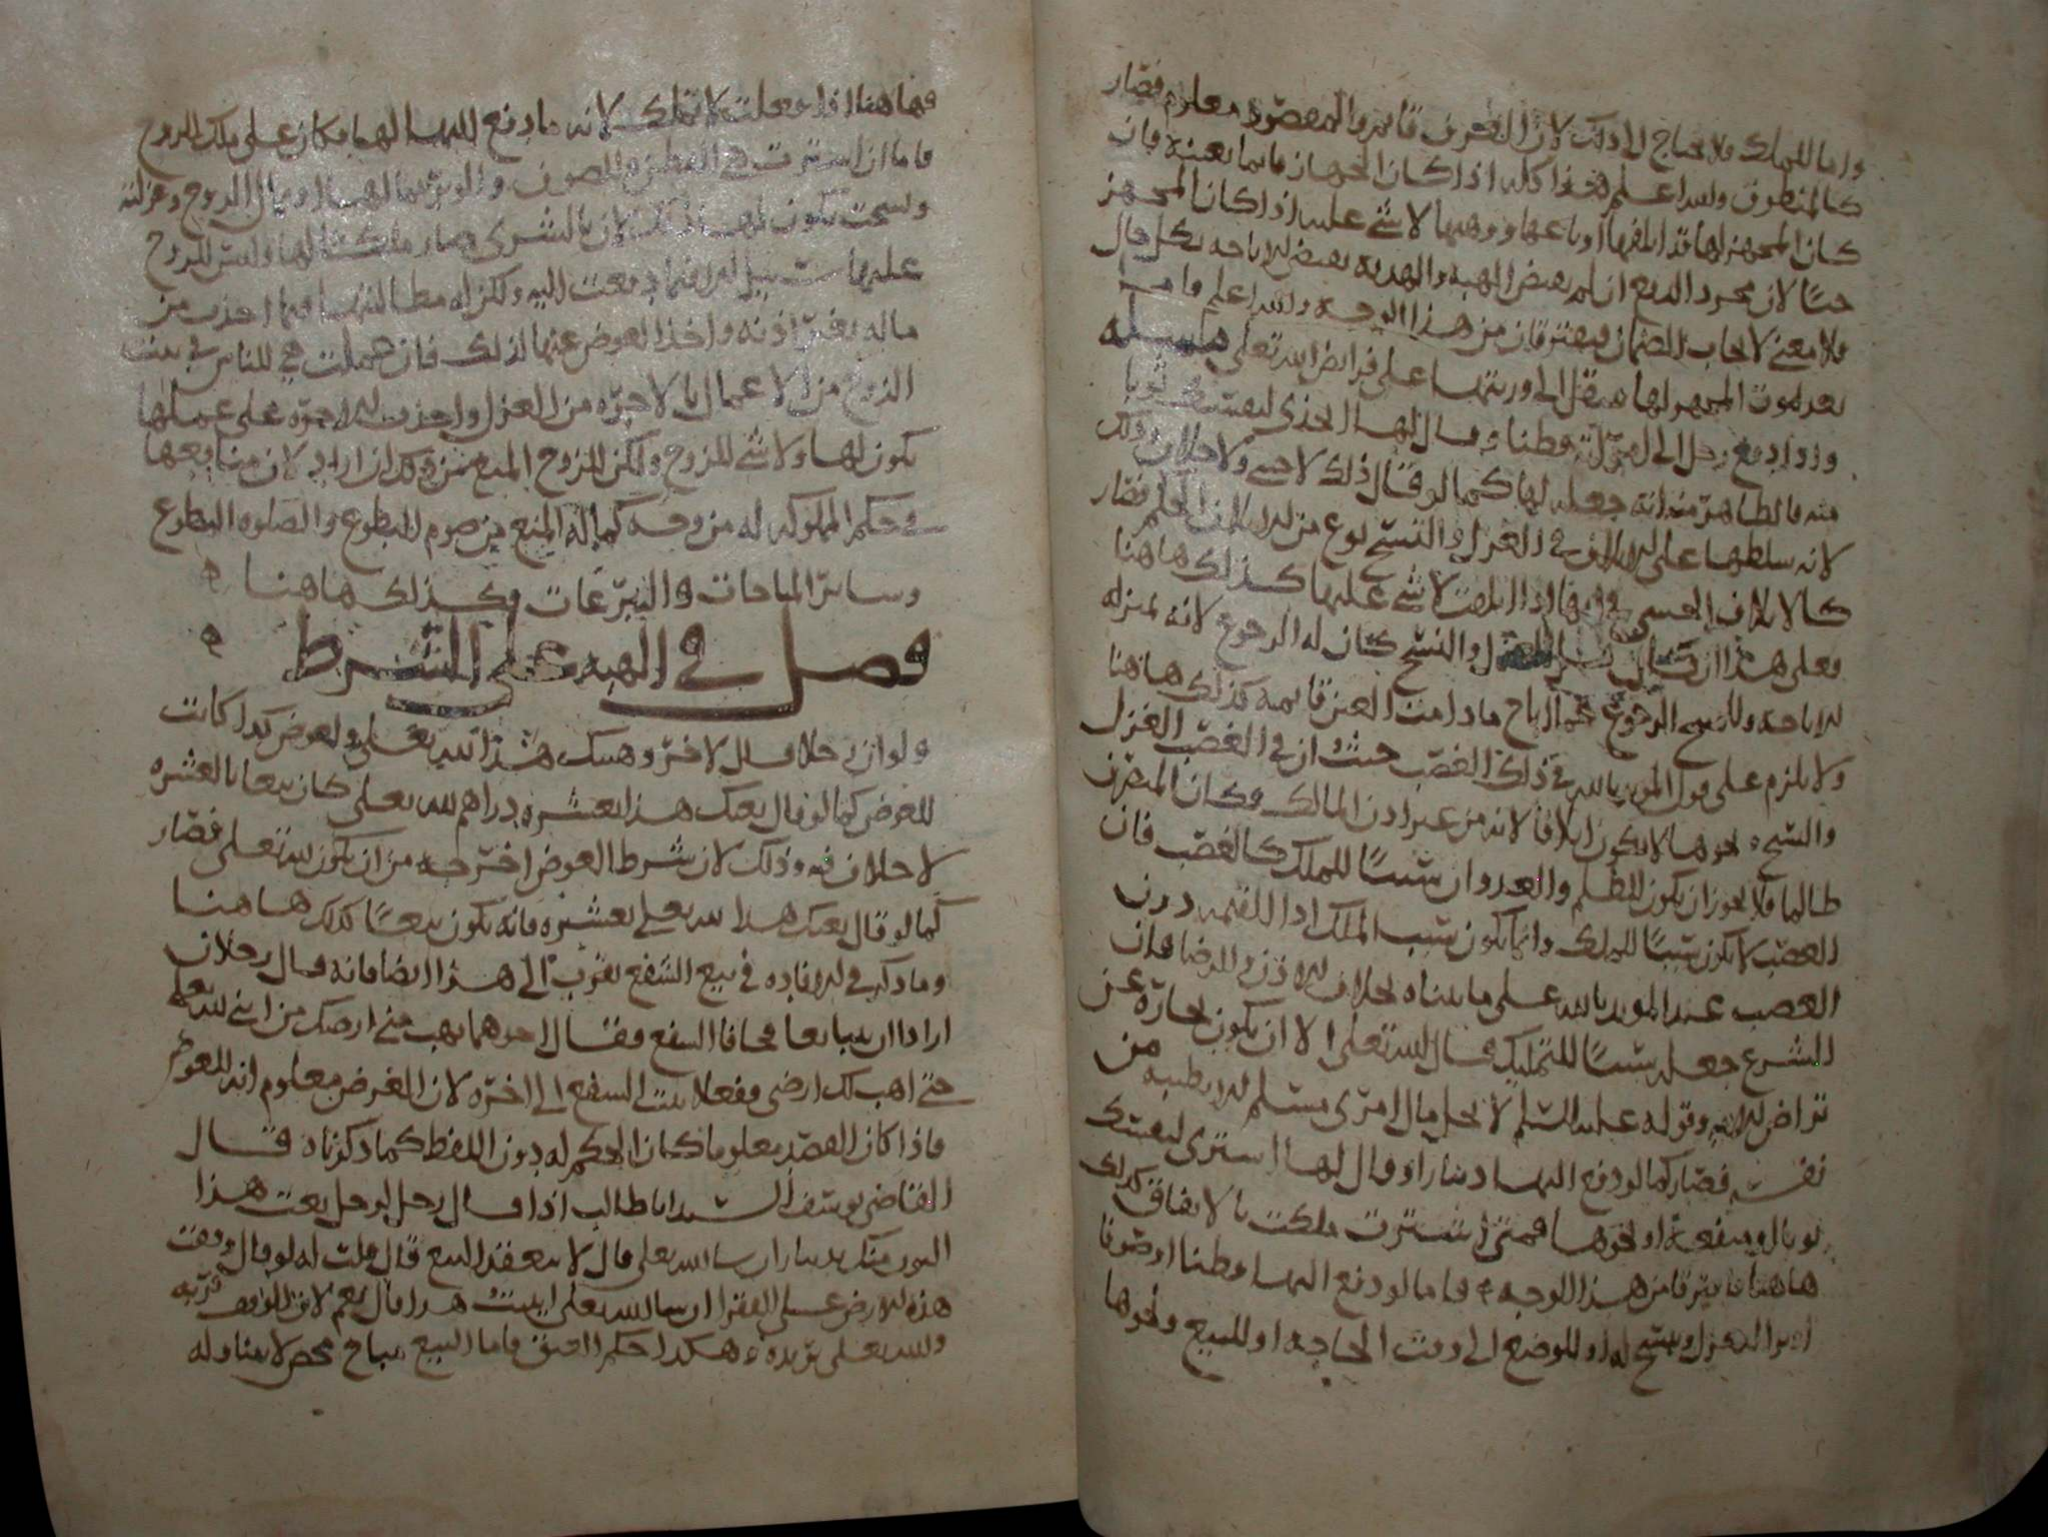 واما للملك فلا يحتاج الى ذلك لان العرف قائم والمقصود معلوم فصار
كالمنطوق والله اعلم هذا كله اذا كان الجهاز قائما بعينه فان
كان المجهز لها قد اتلفها او باعها ووهبها لا شي عليه اذا كان المجهز
حيا لان مجرد الدفع ان لم يفض الهبة والهدية يفيض الاباحة بكل حال
فلا معنى لايجاب الضمان فيفترقان من هذا الوجه والله اعلم واما
بعد موت المجهز لها ينتقل الى ورثتها على فرائض الله تعالى مسئلة
ولو دفع رجل الى امرأته قطنا وقال لها اتخذي لنفسك ثوبا
منه فالظاهر منه انه جعله لها كما لو قال ذلك لاجنبي ولا خلاف وذلك
لانه سلطها على الاتلاف في الغزل والنسج نوع من الاتلاف الحكم فصار
كالاتلاف الحسي في انها اذا اتلفت لا شي عليها كذلك هاهنا
فعلى هذا ان كان الغزل والنسج كان له الرجوع لانه بمنزلة
الاباحة وللمبيح الرجوع عما اباح ما دامت العين قائمة كذلك هاهنا
ولا يلزم على قول المؤيد بالله في ذلك الغصب حيث ان في الغصب الغزل
والنسج ونحوها لا يكون اتلافا لانه من غير اذن المالك وكان المتصرف
ظالما فلا يجوز ان يكون الظلم والعدوان سببا للملك كالغصب فان
الغصب لا يكون سببا للملك وانما يكون سبب الملك اداء القيمة دون
الغصب عند المؤيد بالله على ما بيناه بخلاف الاذن والرضا فان
الشرع جعله سببا للتمليك قال الله تعالى الا ان يكون تجارة عن
تراض الاية وقوله عليه السلم لا يحل مال امرئ مسلم الا بطيبة من
نفسه فصار كما لو دفع اليها دينارا وقال لها اشتري لنفسك
ثوبا او مقنعة او نحوها فمتى اشترت ملكت بالاتفاق كذلك
هاهنا فافترقا من هذا الوجه فاما لو دفع اليها قطنا او صوفا
او برا للغزل وينسج له او للوضع الى وقت الحاجة او للبيع ونحوها
فهاهنا اذا فعلت لا تملك لانه ما دفع اليها لها فكان على ملك الزوج
فاما ان اشترت هي القطن والصوف والوبر لها او بمال الزوج وغزلته
ونسجت يكون لها ذلك لان بالشرى صار ملكا لها وليس للزوج
عليها سبيل الا فيما دفعت اليه ولكن له مطالبتها فيما اخذت من
ماله بغير اذنه واخذ العوض عنها لذلك فان عملت هي للناس في بيت
الزوج من الاعمال بالاجرة من الغزل واخذت الاجرة على عملها
يكون لها ولا شي للزوج ولكن للزوج المنع من ذلك ان اراد لان منافعها
في حكم المملوكة له من وجه كما له المنع من صوم التطوع والصلوة التطوع
وسائر المباحات والتبرعات وكذلك هاهنا
فصل في الهبة على الشرط
ولو ان رجلا قال لاخر وهبتك هذا لله تعلى ولعوض كذا كانت
للعوض كما لو قال بعتك هذا بعشرة دراهم لله تعلى كان بيعا بالعشرة
لا خلاف فيه وذلك لان شرط العوض اخرجه من ان يكون لله تعلى فصار
كما لو قال بعتك هذا لله تعلى بعشرة فانه يكون بيعا كذلك هاهنا
وما ذكر في الافادة في بيع الشفيع يقرب الى هذا ايضا فانه قال رجلان
ارادا ان يتبايعا فخافا الشفيع فقال احدهما تهب مني ارضك من ابني لله تعلى
حتى اهب لك ارضي ففعلا بيتي الشفيع الى اخره لان الغرض معلوم انه للعوض
فاذا كان القصد معلوما كان الحكم له دون اللفظ كما ذكرناه قال
القاضي يوسف السيد ابا طالب اذا قال رجل لرجل بعت هذا
الثوب منك بدينار ان شاء الله تعلى قال لا ينعقد البيع قال قلت له لو قال وقفت
هذه الارض على الفقرا ان شا الله تعلى ايثبت هذا قال نعم لان الوقف قربة
والله تعلى يريده وهكذا حكم العتق فاما البيع مباح محض لا يتناوله